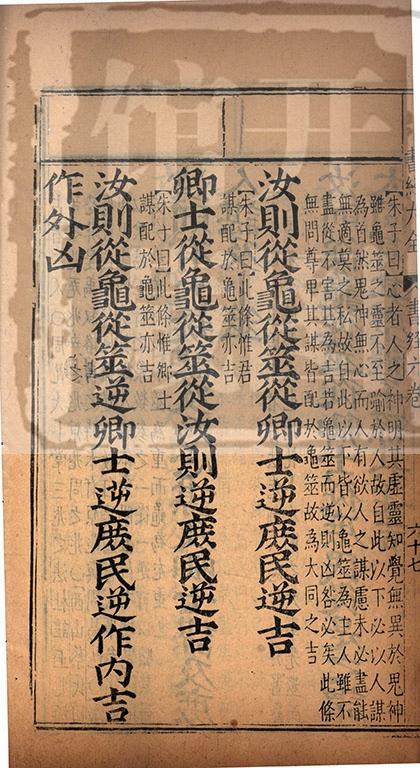 【朱子曰】心者人之神明其虛靈知覺無異於鬼神
雖龜筮之靈不至踰於人故自此以下必以人謀
為首然鬼神無心而人有欲人之謀慮未必盡能
無適莫之私故自此以下皆以龜筮為主人雖不
盡從不害其為吉若龜筮而逆則凶咎必矣此條
無問尊卑其謀皆配於龜筮故為大同之吉
汝則從龜從筮從卿士逆庶民逆吉
【朱子曰】此條惟君
謀配於龜筮亦吉
卿士從龜從筮從汝則逆庶民逆吉
【朱子曰】此條惟卿士
謀配於龜筮亦吉
汝則從龜從筮逆卿士逆庶民逆作內吉
作外凶